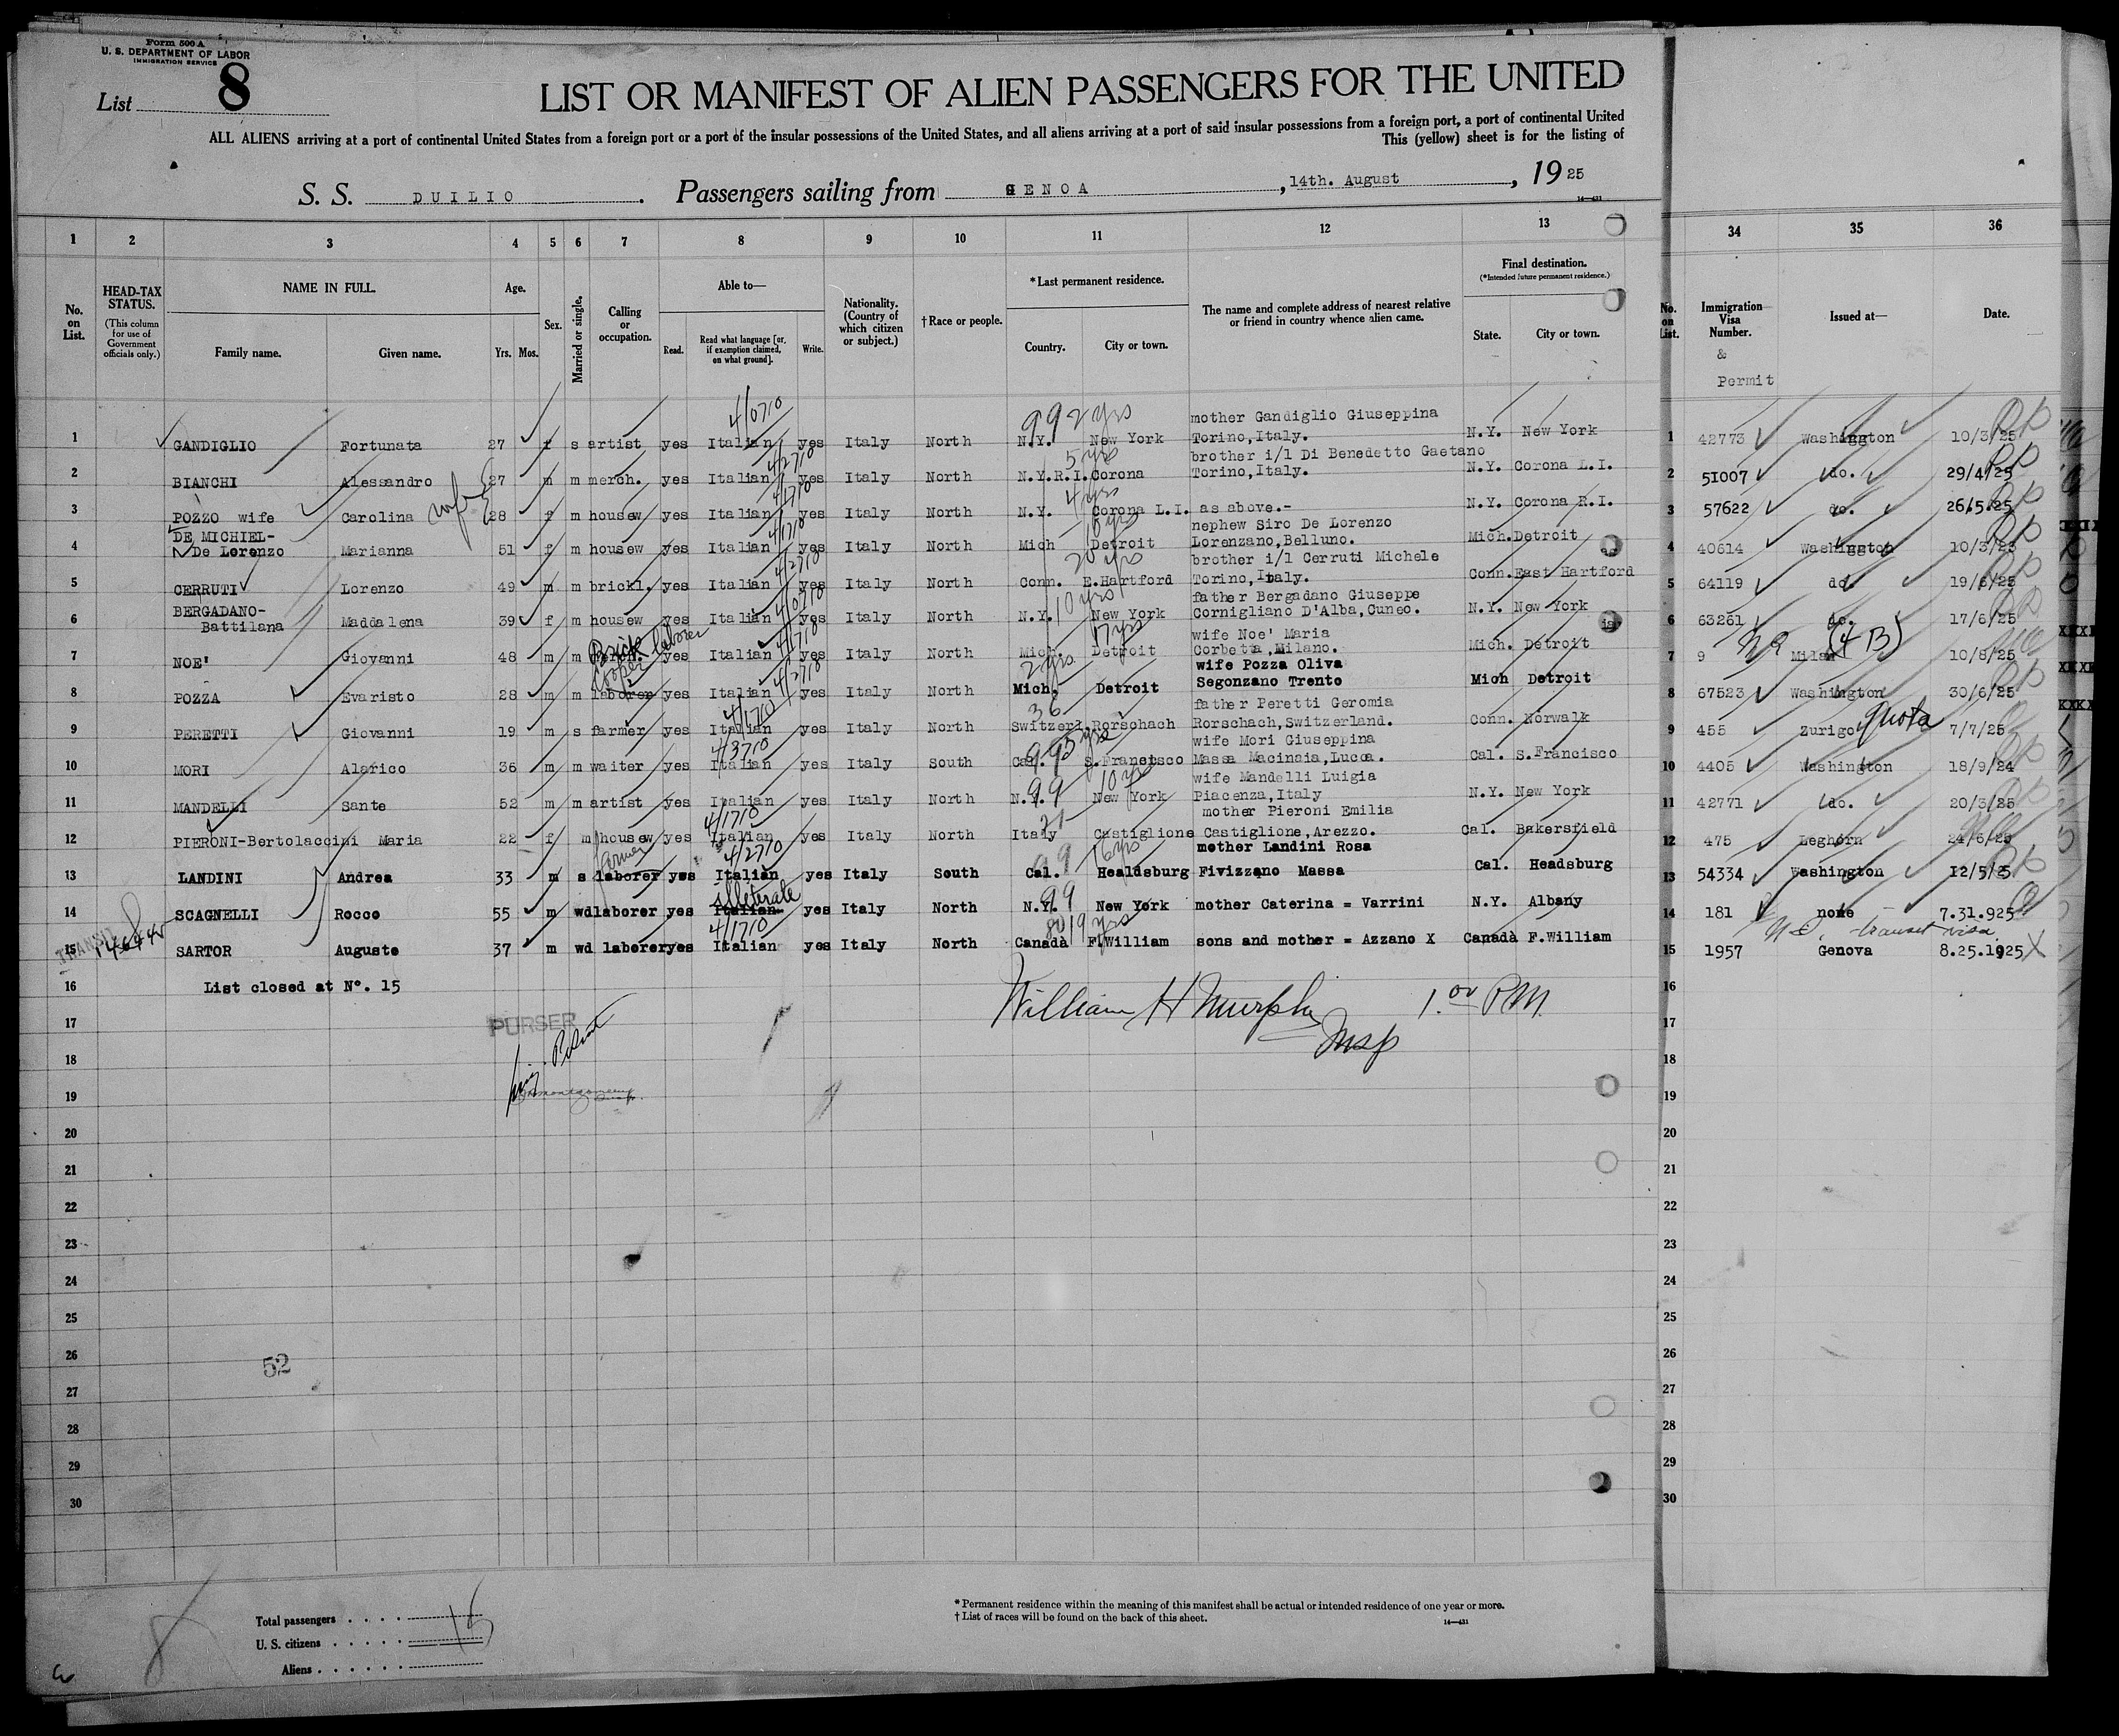 Form 500 A
U. S. DEPARTMENT OF LABOR
IMMIGRATION SERVICE
List 8
LIST OR MANIFEST OF ALIEN PASSENGERS FOR THE UNITED
ALL ALIENS arriving at a port of continental United States from a foreign port or a port of the insular possessions of the United States, and all aliens arriving at a port of said insular possessions from a foreign port, a port of continental United
This (yellow) sheet is for the listing of
S. S. DUILIO. Passengers sailing from GENOA, 14th. August, 19 25
14—431
1 2 3 4 5 6 7 8 9 10 11 12 13 34 35 36
No. on List.
HEAD-TAX STATUS.
(This column for use of Government officials only.)
NAME IN FULL.
Family name. Given name.
Age.
Yrs. Mos.
Sex.
Married or single.
Calling or occupation.
Able to—
Read. Read what language [or, if exemption claimed, on what ground]. Write.
Nationality. (Country of which citizen or subject.)
†Race or people.
*Last permanent residence.
Country. City or town.
The name and complete address of nearest relative or friend in country whence alien came.
Final destination.
(*Intended future permanent residence.)
State. City or town.
No. on List.
Immigration Visa Number.
& Permit
Issued at—
Date.
4/0710 99 2 yrs mother Gandiglio Giuseppina
1 GANDIGLIO Fortunata 27 f s artist yes Italian yes Italy North N.Y. New York Torino, Italy. N.Y. New York 1 42773 Washington 10/3/25
4/2710 5 yrs brother i/l Di Benedetto Gaetano
2 BIANCHI Alessandro 27 m m merch. yes Italian yes Italy North N.Y.R.I. Corona Torino, Italy. N.Y. Corona L.I. 2 51007 do. 29/4/25
wife 4/1710 4 yrs
3 POZZO wife Carolina 28 f m housew yes Italian yes Italy North N.Y. Corona L.I. as above.- N.Y. Corona R.I. 3 57622 do. 26/5.25
DE MICHIEL- 4/1710 nephew Siro De Lorenzo
4 De Lorenzo Marianna 51 f m housew yes Italian yes Italy North Mich Detroit Lorenzano, Belluno. Mich. Detroit 4 40614 Washington 10/3/25
4/2710 20 yrs brother i/l Cerruti Michele
5 CERRUTI Lorenzo 49 m m brickl. yes Italian yes Italy North Conn. E.Hartford Torino, Italy. Conn. East Hartford 5 64119 do. 19/6/25
BERGADANO- 4/0710 10 yrs father Bergadano Giuseppe
6 Battilana Maddalena 39 f m housew yes Italian yes Italy North N.Y. New York Cornigliano D'Alba, Cuneo. N.Y. New York 6 63261 do. 17/6/25
Brick laborer 4/1710 17 yrs wife Noe' Maria
7 NOE' Giovanni 48 m m yes Italian yes Italy North Mich. Detroit Corbetta, Milano. Mich. Detroit 7 9 Milan (4 B) 10/8/25
4/2710 2 yrs wife Pozza Oliva
8 POZZA Evaristo 28 m m laborer yes Italian yes Italy North Mich. Detroit Segonzano Trento Mich Detroit 8 67523 Washington 30/6/25
4/1710 36 father Peretti Geromia
9 PERETTI Giovanni 19 m s farmer yes Italian yes Italy North Switzerl. Rorschach Rorschach, Switzerland. Conn. Norwalk 9 455 Zurigo quota 7/7/25
4/3710 99 5 yrs wife Mori Giuseppina
10 MORI Alarico 36 m m waiter yes Italian yes Italy South Cal. S.Francisco Massa Macinaia, Lucca. Cal. S.Francisco 10 4405 Washington 18/9/24
99 10 yrs wife Mandelli Luigia
11 MANDELLI Sante 52 m m artist yes Italian yes Italy North N.Y. New York Piacenza, Italy N.Y. New York 11 42771 do. 20/3/25
4/1710 21 mother Pieroni Emilia
12 PIERONI-Bertolaccini Maria 22 f m housew yes Italian yes Italy North Italy Castiglione Castiglione, Arezzo. Cal. Bakersfield 12 475 Leghorn 24/6/25
farmer 4/2710 99 16 yrs mother Landini Rosa
13 LANDINI Andrea 33 m s laborer yes Italian yes Italy South Cal. Healdsburg Fivizzano Massa Cal. Headsburg 13 54334 Washington 12/5/25
illeterate 99
14 SCAGNELLI Rocco 55 m wd laborer yes Italian yes Italy North N.Y. New York mother Caterina = Varrini N.Y. Albany 14 181 none 7.31.925
TRANSIT 4/1710 80 19 yrs transit visa
15 SARTOR Auguste 37 m wd laborer yes Italian yes Italy North Canadà F.William sons and mother = Azzano X Canadà F.William 15 1957 Genova 8.25.1925 X
16 List closed at N°. 15 16
William H Murphy 1.00 P.M.
Insp
17 PURSER 17
18 18
19 19
20 20
21 21
22 22
23 23
24 24
25 25
26 26
52
27 27
28 28
29 29
30 30
Total passengers . . . . 15
U. S. citizens . . . . .
Aliens . . . . . .
8
* Permanent residence within the meaning of this manifest shall be actual or intended residence of one year or more.
† List of races will be found on the back of this sheet.
14—431